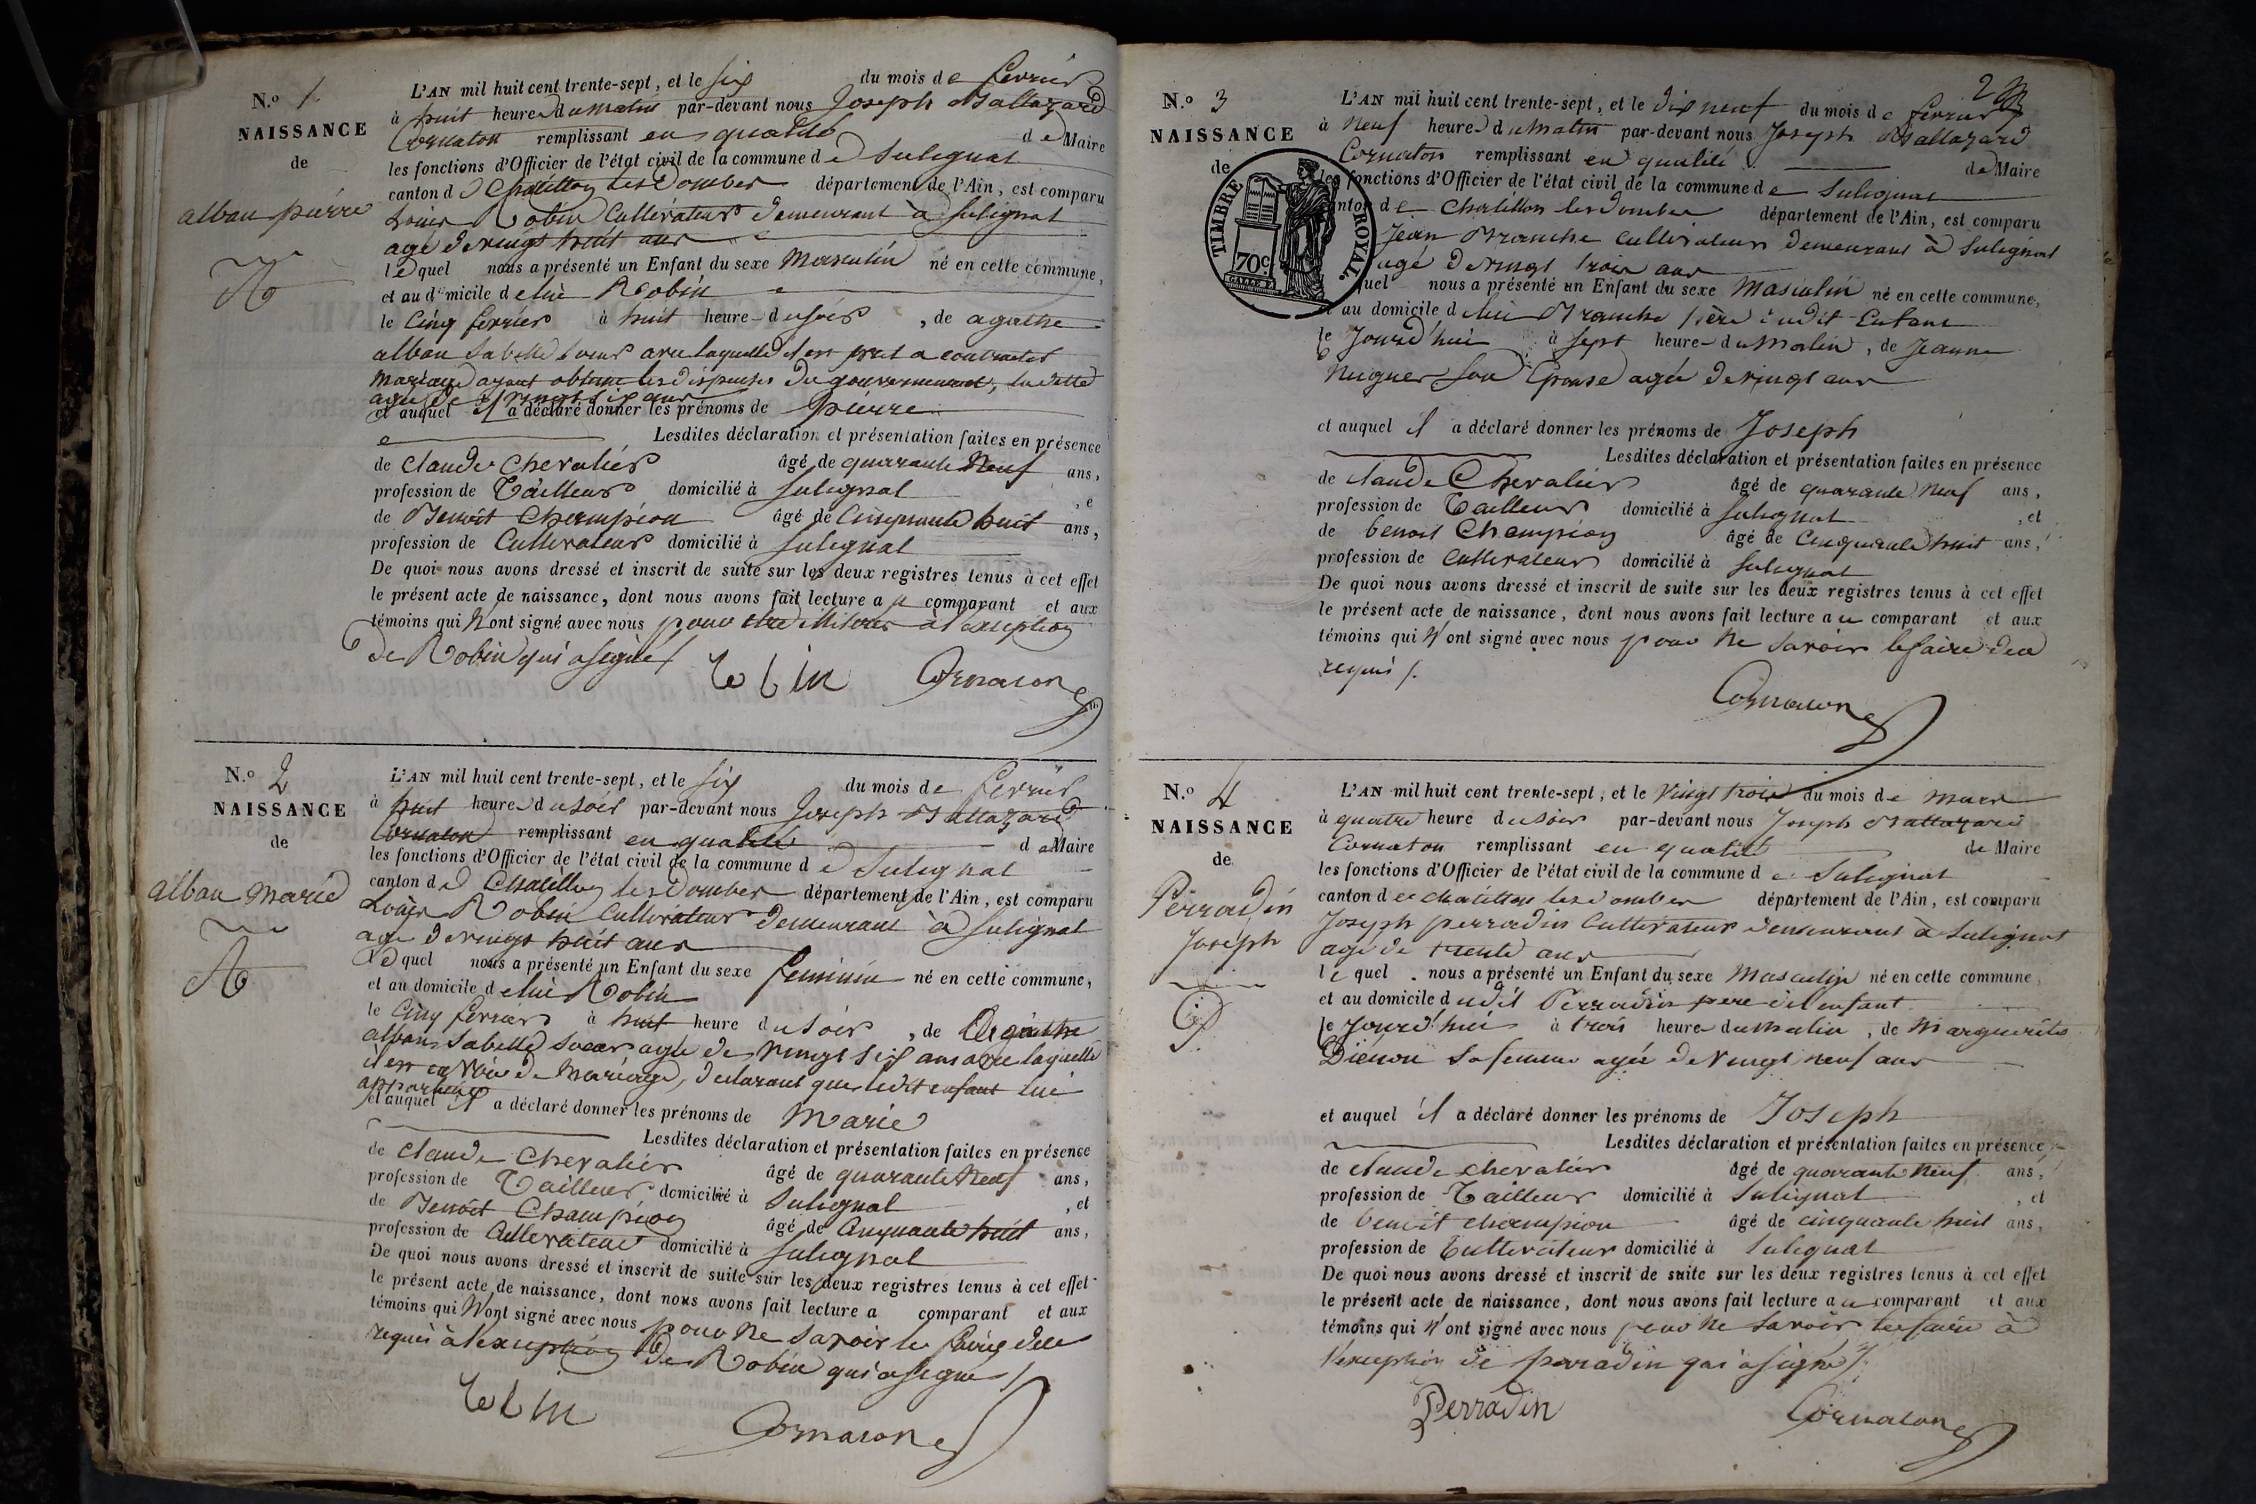 N.o 1
NAISSANCE
de
alban pierre
L'AN mil huit cent trente-sept, et le six du mois de fevrier
à huit heure du matin par-devant nous Joseph Baltazard
Cornaton remplissant en qualité de Maire
les fonctions d'Officier de l'état civil de la commune de Sulignat
canton de Chatillon les Dombes département de l'Ain, est comparu
Louis Robin Cultivateur demeurant à Sulignat
agé de vingt huit ans
lequel nous a présenté un Enfant du sexe Masculin né en cette commune,
et au domicile de lui Robin
le Cinq fevrier à huit heure du soir, de agathe
alban sa belle soeur avec laquelle il est pret a contracter
mariage ayant obtenu les dispenses du gouvernement, la ditte
agée de vingt six ans
et auquel il a déclaré donner les prénoms de pierre
Lesdites déclaration et présentation faites en présence
de claude Chevalier âgé de quarante Neuf ans,
profession de Tailleur domicilié à Sulignat, e
de Benoit Champion âgé de Cinquante huit ans,
profession de Cultivateur domicilié à Sulignat
De quoi nous avons dressé et inscrit de suite sur les deux registres tenus à cet effet
le présent acte de naissance, dont nous avons fait lecture au comparant et aux
témoins qui N'ont signé avec nous pour etre illiteres à l'exception
de Robin qui a signé /.
robin Cornaton
N.o 2
NAISSANCE
de
alban marie
L'AN mil huit cent trente-sept, et le six du mois de fevrier
à huit heure du soir par-devant nous Joseph Baltazard
Cornaton remplissant en qualité de Maire
les fonctions d'Officier de l'état civil de la commune de Sulignat
canton de Chatillon les Dombes département de l'Ain, est comparu
Louis Robin Cultivateur demeurant à Sulignat
age de vingt huit ans
lequel nous a présenté un Enfant du sexe feminin né en cette commune,
et au domicile de lui Robin
le Cinq fevrier à huit heure du soir, de Agathe
alban sa belle soeur agée de vingt six ans avec laquelle
il est en voie de mariage, declarant que ledit enfant lui
appartient
et auquel il a déclaré donner les prénoms de Marie
Lesdites déclaration et présentation faites en présence
de claude chevalier âgé de quarante Neuf ans,
profession de Tailleur domicilié à Sulignat, et
de Benoit Champion âgé de Cinquante huit ans,
profession de Cultivateur domicilié à Sulignat
De quoi nous avons dressé et inscrit de suite sur les deux registres tenus à cet effet
le présent acte de naissance, dont nous avons fait lecture a comparant et aux
témoins qui N'ont signé avec nous pour Ne savoir le faire de ce
requis à l'exception de Robin qui a signé /.
robin
Cornaton
2
N.o 3
NAISSANCE
de
TIMBRE ROYAL.
70c.
L'AN mil huit cent trente-sept, et le dix neuf du mois de fevrier
à Neuf heure du Matin par-devant nous Joseph Baltazard
Cornaton remplissant en qualité de Maire
les fonctions d'Officier de l'état civil de la commune de Sulignat
canton de Chatillon les dombes département de l'Ain, est comparu
Jean Branche cultivateur demeurant à Sulignat
agé de vingt trois ans
quel nous a présenté un Enfant du sexe Masculin né en cette commune,
au domicile de lui Branche père dudit Enfant
le Jourd'hui à sept heure du Matin, de Jeanne
Nuguer son Epouse agée de vingt ans
et auquel il a déclaré donner les prénoms de Joseph
Lesdites déclaration et présentation faites en présence
de claude Chevalier âgé de quarante Neuf ans,
profession de Tailleur domicilié à Sulignat, et
de benoit Champion âgé de Cinquante huit ans,
profession de Cultivateur domicilié à Sulignat
De quoi nous avons dressé et inscrit de suite sur les deux registres tenus à cet effet
le présent acte de naissance, dont nous avons fait lecture au comparant et aux
témoins qui N'ont signé avec nous pour Ne savoir le faire de ce
requis /.
Cornaton
N.o 4
NAISSANCE
de
Perradin
Joseph
L'AN mil huit cent trente-sept, et le Vingt trois du mois de mars
à quatre heure du soir par-devant nous Joseph Baltazard
Cornaton remplissant en qualité de Maire
les fonctions d'Officier de l'état civil de la commune de Sulignat
canton de chatillon les dombes département de l'Ain, est comparu
Joseph perradin Cultivateur demeurant à Sulignat
agé de trente ans
lequel nous a présenté un Enfant du sexe Masculin né en cette commune,
et au domicile dudit Perradin pere dit enfant
le Jourd'hui à trois heure du matin, de Marguerite
Diénon sa femme agée de vingt neuf ans
et auquel il a déclaré donner les prénoms de Joseph
Lesdites déclaration et présentation faites en présence
de claude chevalier âgé de quarante Neuf ans,
profession de Tailleur domicilié à Sulignat, et
de benoit champion âgé de cinquante huit ans,
profession de Cultivateur domicilié à Sulignat
De quoi nous avons dressé et inscrit de suite sur les deux registres tenus à cet effet
le présent acte de naissance, dont nous avons fait lecture au comparant et aux
témoins qui N'ont signé avec nous pour Ne savoir le faire à
l'exception de perradin qui a signé /.
Perradin Cornaton